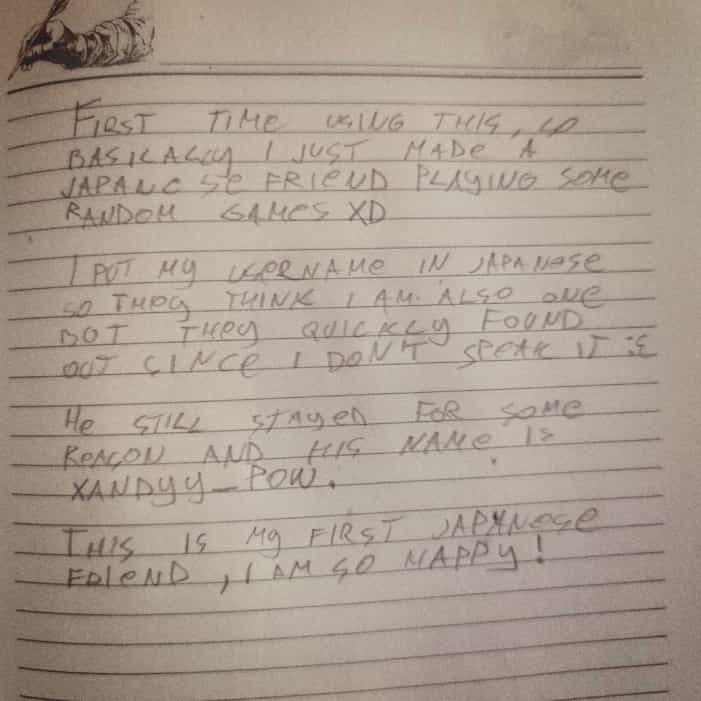 FIRST TIME USING THIS, SO
BASICALLY I JUST MADE A
JAPANESE FRIEND PLAYING SOME
RANDOM GAMES XD
I PUT MY USERNAME IN JAPANESE
SO THEY THINK I AM ALSO ONE
BUT THEY QUICKLY FOUND
OUT SINCE I DON'T SPEAK IT :E
HE STILL STAYED FOR SOME
REASON AND HIS NAME IS
XANDYY_POW.
THIS IS MY FIRST JAPANESE
FRIEND, I AM SO HAPPY!